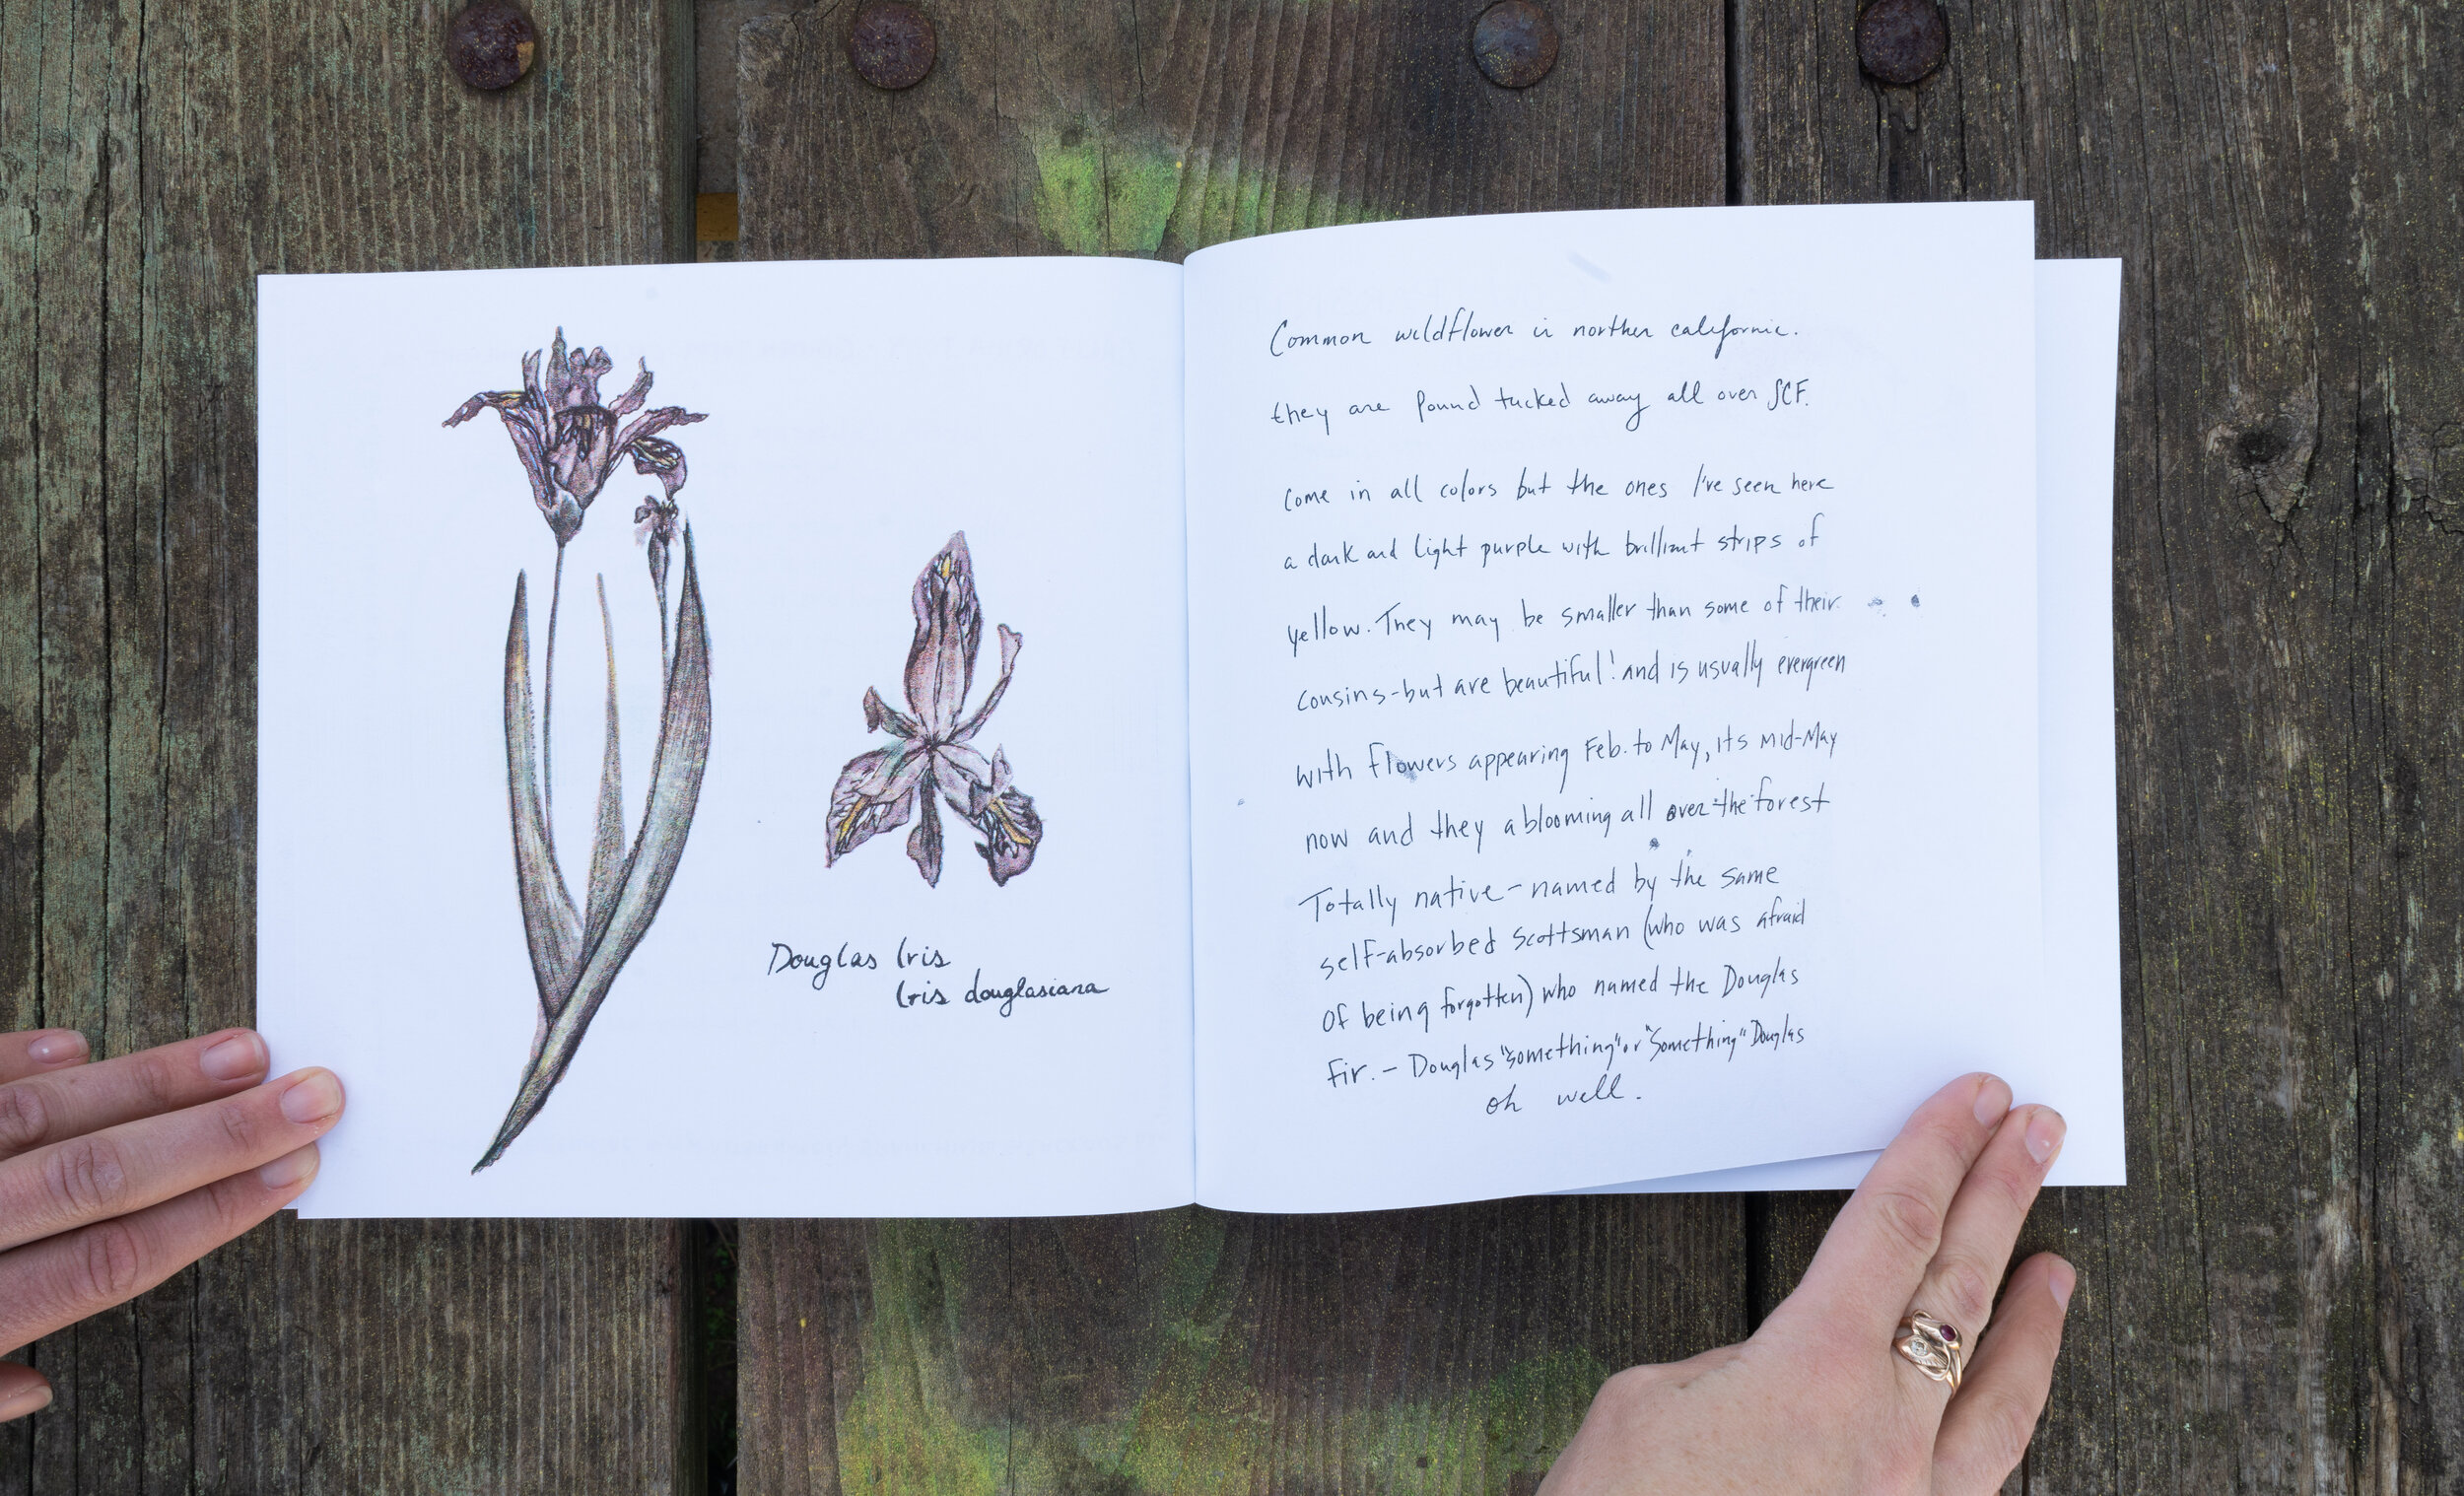 Douglas Iris
Iris douglasiana
Common wildflower in norther california.
they are found tucked away all over JCF.
come in all colors but the ones I've seen here
a dark and light purple with brilliant strips of
yellow. They may be smaller than some of their
cousins-but are beautiful! and is usually evergreen
with flowers appearing Feb. to May, its mid-May
now and they a blooming all over the forest
Totally native-named by the same
self-absorbed Scottsman (who was afraid
of being forgotten) who named the Douglas
Fir. - Douglas "something" or "Something" Douglas
oh well.